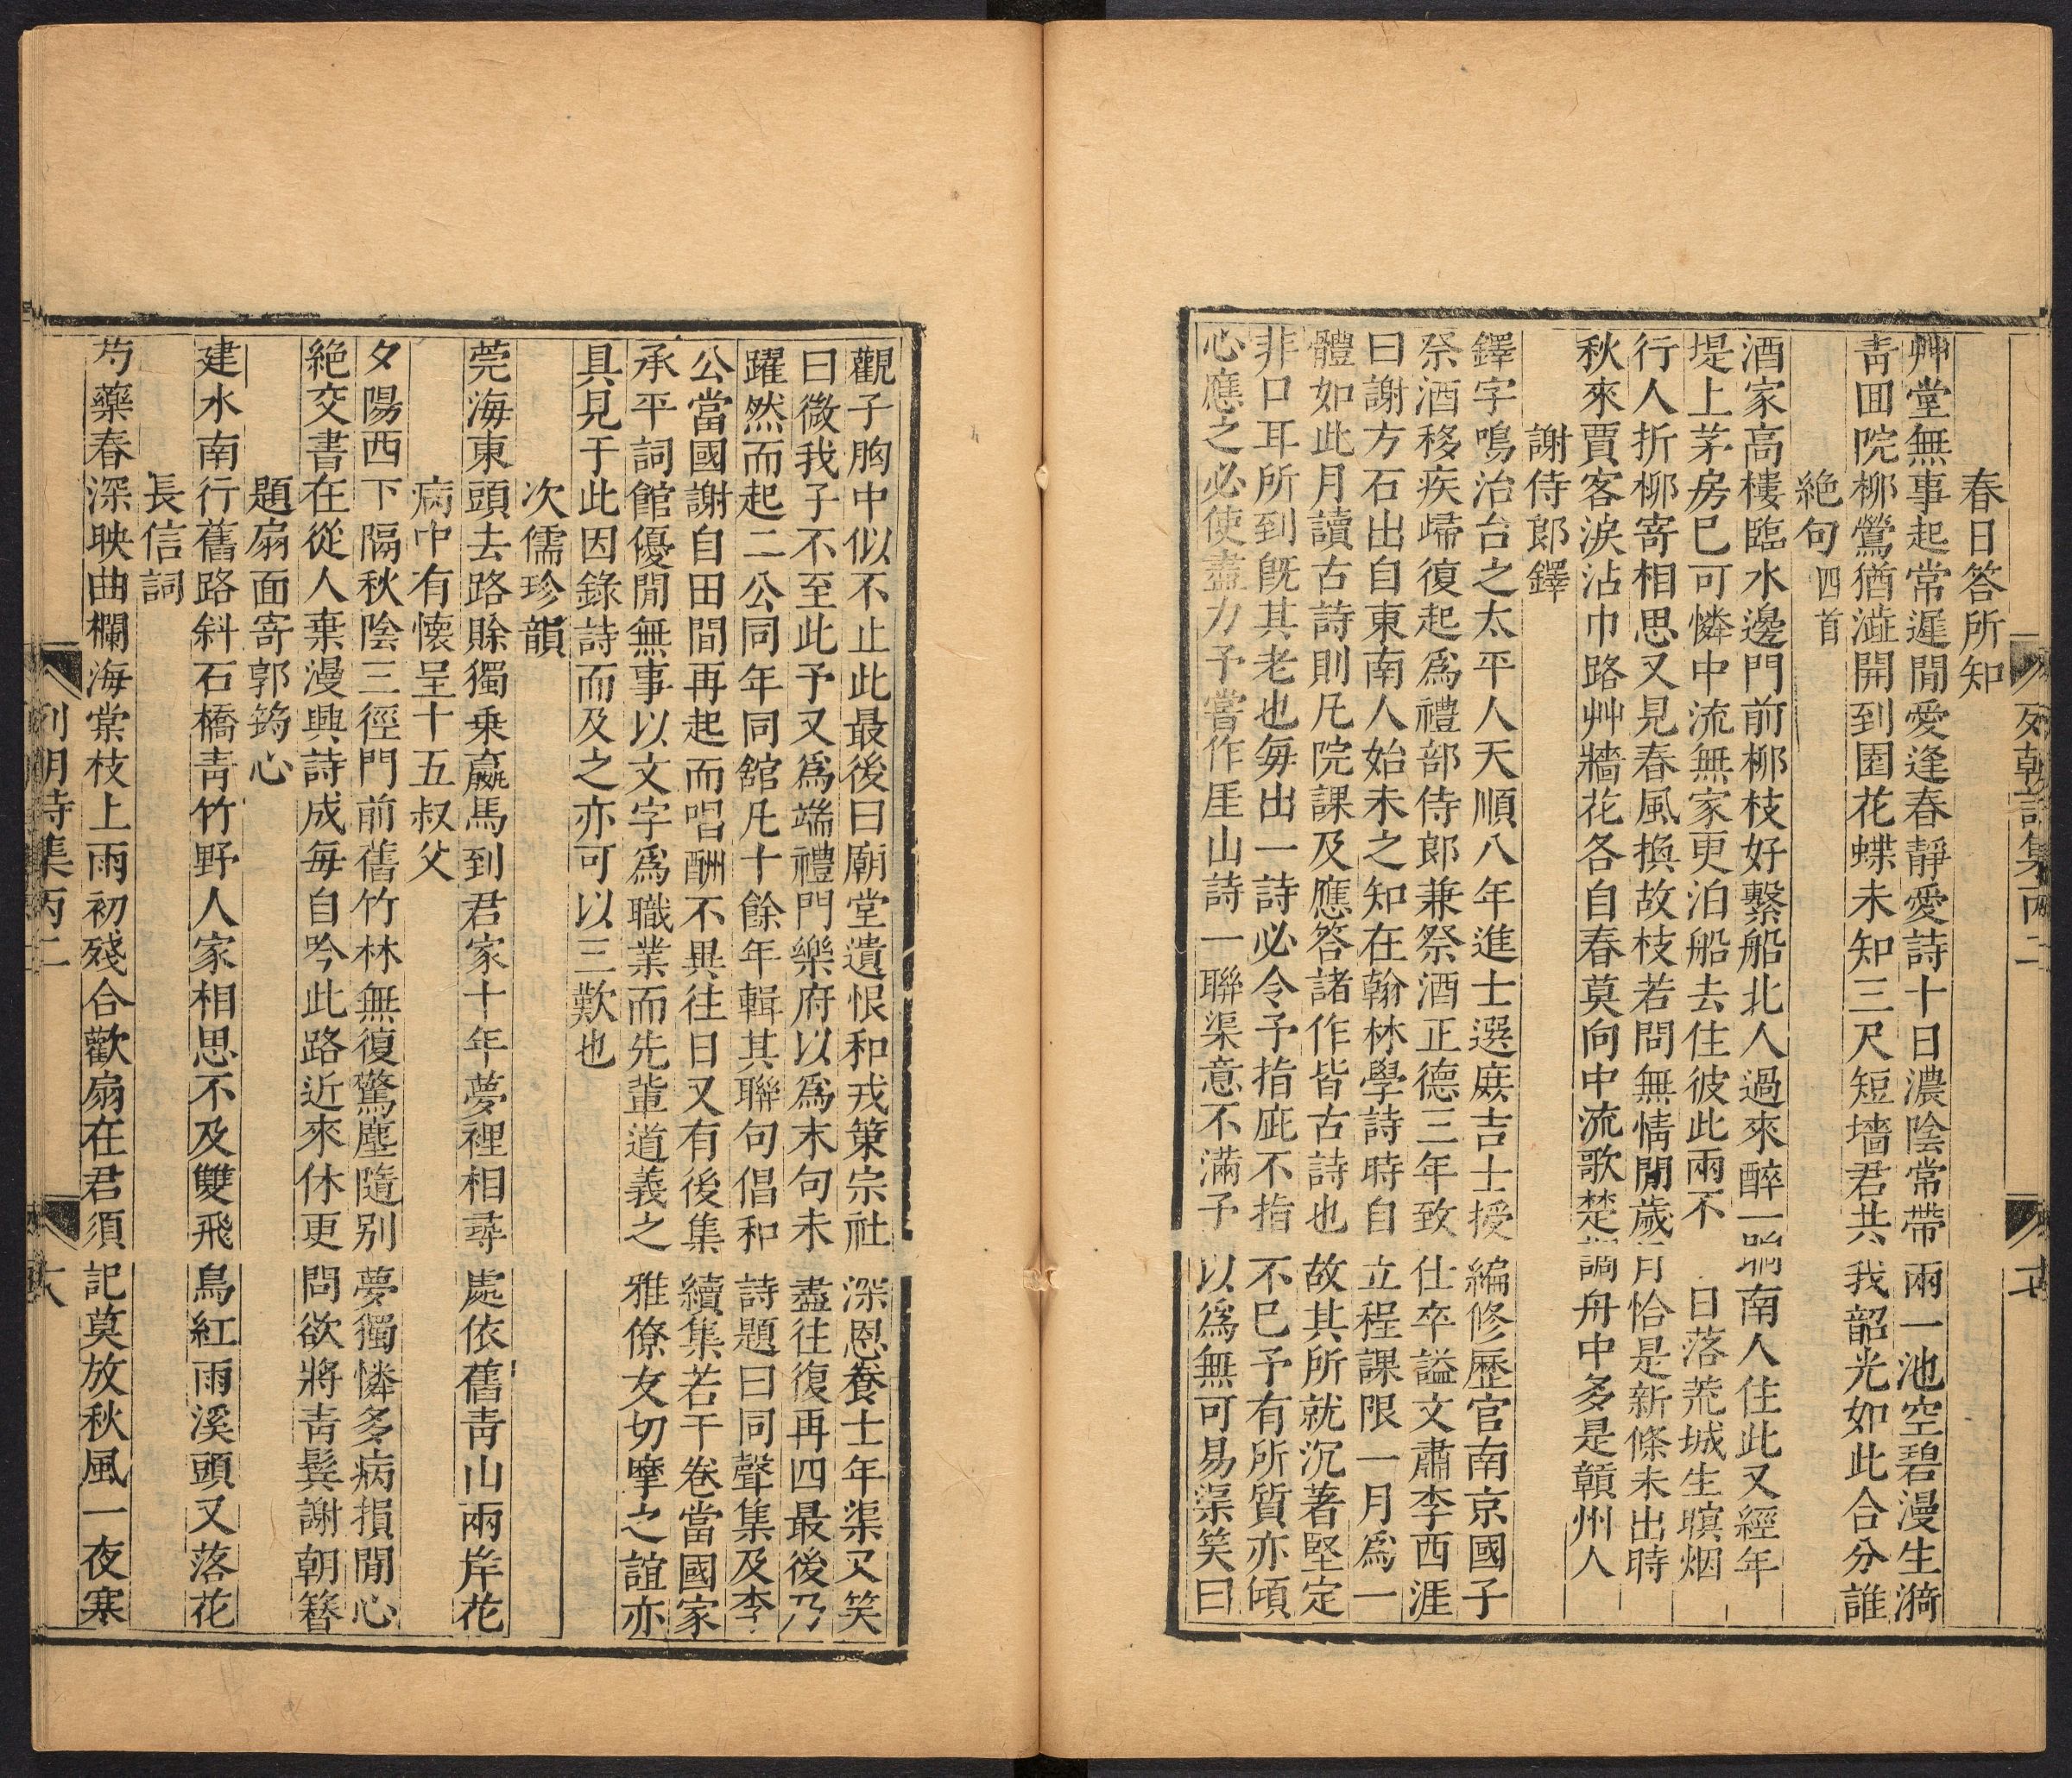 列朝詩集丙二
十七
春日答所知
艸堂無事起常遲閒愛逢春靜愛詩十日濃陰常帶雨一池空碧漫生漪
青囬院柳鶯猶澁開到園花蝶未知三尺短墻君共我韶光如此合分誰
絕句四首
酒家高樓臨水邊門前柳枝好繫船北人過來醉一餉南人住此又經年
堤上茅房已可憐中流無家更泊船去住彼此兩不 日落荒城生暝烟
行人折柳寄相思又見春風換故枝若問無情閒歲月恰是新條未出時
秋來賈客淚沾巾路艸牆花各自春莫向中流歌楚調舟中多是贛州人
謝侍郎鐸
鐸字鳴治台之太平人天順八年進士選庶吉士授編修歷官南京國子
祭酒移疾歸復起爲禮部侍郎兼祭酒正德三年致仕卒謚文肅李西涯
曰謝方石出自東南人始未之知在翰林學詩時自立程課限一月爲一
體如此月讀古詩則凡院課及應答諸作皆古詩也故其所就沉著堅定
非口耳所到旣其老也每出一詩必令予指疵不指不已予有所質亦傾
心應之必使盡力予嘗作厓山詩一聯渠意不滿予以爲無可易渠笑曰
觀子胸中似不止此最後曰廟堂遺恨和戎策宗社深恩養士年渠又笑
曰微我子不至此予又爲端禮門樂府以爲末句未盡往復再四最後乃
躍然而起二公同年同舘凡十餘年輯其聯句倡和詩題曰同聲集及李
公當國謝自田間再起而唱酬不異往日又有後集續集若干卷當國家
承平詞館優閒無事以文字爲職業而先輩道義之雅僚友切摩之誼亦
具見于此因錄詩而及之亦可以三歎也
次儒珍韻
莞海東頭去路賒獨乗羸馬到君家十年夢裡相尋處依舊青山兩岸花
病中有懷呈十五叔父
夕陽西下隔秋陰三徑門前舊竹林無復驚塵隨別夢獨憐多病損閒心
絕交書在從人棄漫興詩成每自吟此路近來休更問欲將青鬂謝朝簪
題扇面寄郭筠心
建水南行舊路斜石橋青竹野人家相思不及雙飛鳥紅雨溪頭又落花
長信詞
芍藥春深映曲欄海棠枝上雨初殘合歡扇在君須記莫放秋風一夜寒
列朝詩集丙二
十八